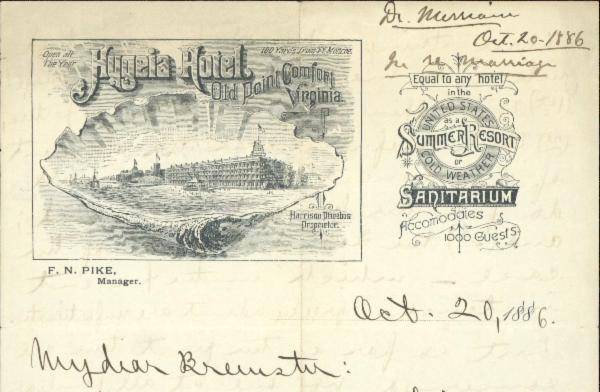 Dr. Merriam
Oct. 20-1886
In re marriage
Open all
The Year
Hygeia Hotel
100 Yards from Ft. Monroe.
Old Point Comfort
Virginia.
Harrison Phoebus
Proprietor.
F. N. PIKE,
Manager.
Equal to any hotel
in the
UNITED STATES
as a
SUMMER RESORT
or
COLD WEATHER
SANITARIUM
Accomodates
1000 Guests
Oct. 20, 1886.
My dear Brewster: